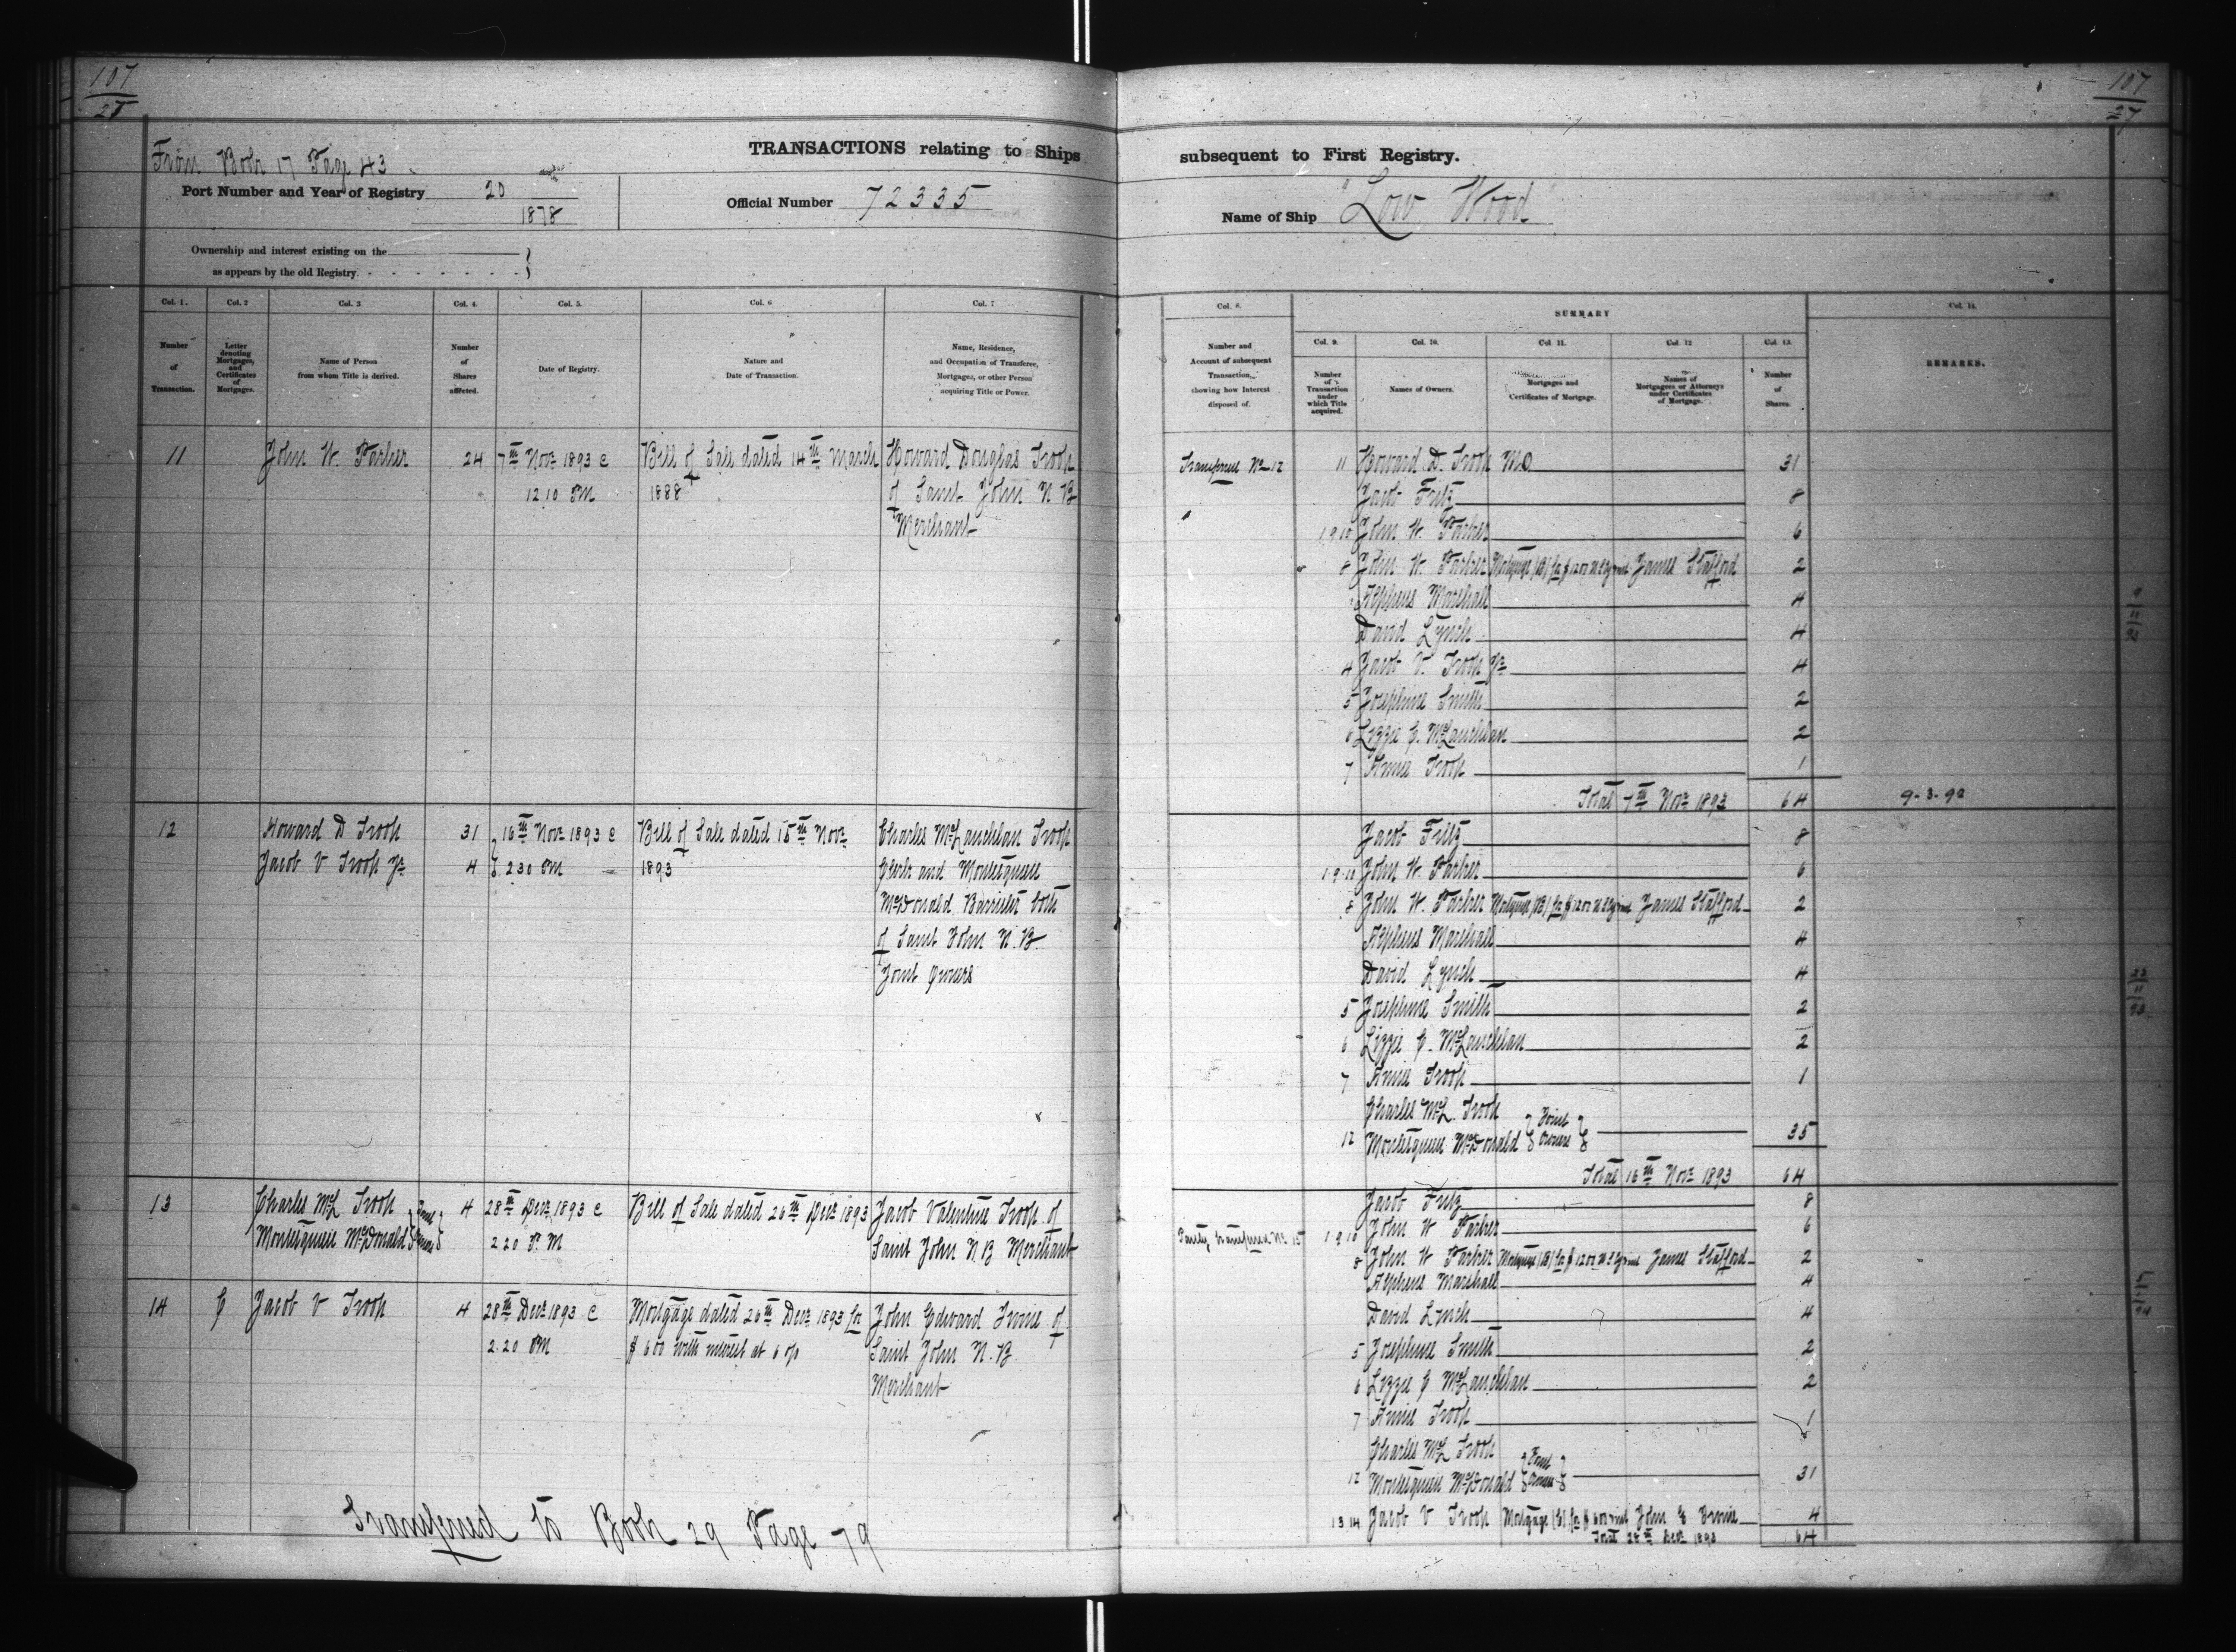 107
107
27
From Book 17 Page 43
TRANSACTIONS relating to Ships
subsequent to First Registry.
Port Number and Year of Registry 20
1878
Official Number 72335
Name of Ship "Low Wood"
Ownership and interest existing on the
as appears by the old Registry.
Col. 1.
Col. 2
Col. 3
Col. 4.
Col. 5.
Col. 6
Col. 7
Number
of
Transaction.
Letter
denoting
Mortgages,
and
Certificates
of
Mortgages.
Name of Person
from whom Title is derived.
Number
of
Shares
affected.
Date of Registry.
Nature and
Date of Transaction.
Name, Residence,
and Occupation of Transferee,
Mortgagee, or other Person
acquiring Title or Power.
11 John W. Parker 24 7th Novr 1893 @ Bill of Sale dated 14th March Howard Douglas Troop
12 10 PM 1888 of Saint John N B
Merchant
12 Howard D Troop 31 16th Novr 1893 @ Bill of Sale dated 15th Novr Charles McLauchlan Troop
Jacob V Troop Jr 4 2 30 PM 1893 Clerk and Montesquieu
McDonald Barrister both
of Saint John N. B
Joint Owners
13 Charles McL Troop Joint 4 28th Decr 1893 @ Bill of Sale dated 26th Decr 1893 Jacob Valentine Troop of
Montesquieu McDonald Owners 2 20 P. M Saint John N. B Merchant
14 C Jacob V Troop 4 28th Decr 1893 @ Mortgage dated 26th Decr 1893 for John Edward Irvine of
2.20 PM $ 600 with interest at 6 % Saint John N. B.
Merchant
Transferred to Book 29 Page 79
Col. 8.
SUMMARY
Col. 14.
Number and
Account of subsequent
Transaction,
showing how Interest
disposed of.
Col. 9.
Col. 10.
Col. 11.
Col. 12
Col. 13.
Number
of
Transaction
under
which Title
acquired.
Names of Owners.
Mortgages and
Certificates of Mortgage.
Names of
Mortgagees or Attorneys
under Certificates
of Mortgage.
Number
of
Shares.
REMARKS.
Transferred No 12 11 Howard D. Troop M.O. 31
Jacob Fritz 8
1 9 10 John W. Parker 6
8 John W. Parker Mortgage (B) for $1200 James Stafford 2
Alpheus Marshall 4
David Lynch 4
4 Jacob V. Troop Jr 4
5 Josephine Smith 2
6 Lizzie C. McLauchlan 2
7 Annie Troop 1
Total 7th Novr 1893 64
Jacob Fritz 8
1 9 10 John W. Parker 6
8 John W. Parker Mortgage (B) for $1200 James Stafford 2
Alpheus Marshall 4
David Lynch 4
5 Josephine Smith 2
6 Lizzie C. McLauchlan 2
7 Annie Troop 1
Charles McL. Troop Joint
12 Montesquieu McDonald Owners 35
Total 16th Novr 1893 64
Jacob Fritz 8
Partly transferred No 1 9 10 John W Parker 6
8 John W Parker Mortgage (B) for $1200 James Stafford 2
Alpheus Marshall 4
David Lynch 4
5 Josephine Smith 2
6 Lizzie C McLauchlan 2
7 Annie Troop 1
Charles McL Troop Joint
12 Montesquieu McDonald Owners 31
13 14 Jacob V Troop Mortgage (C) for $600 int John E Irvine 4
Total 28th Decr 1893 64